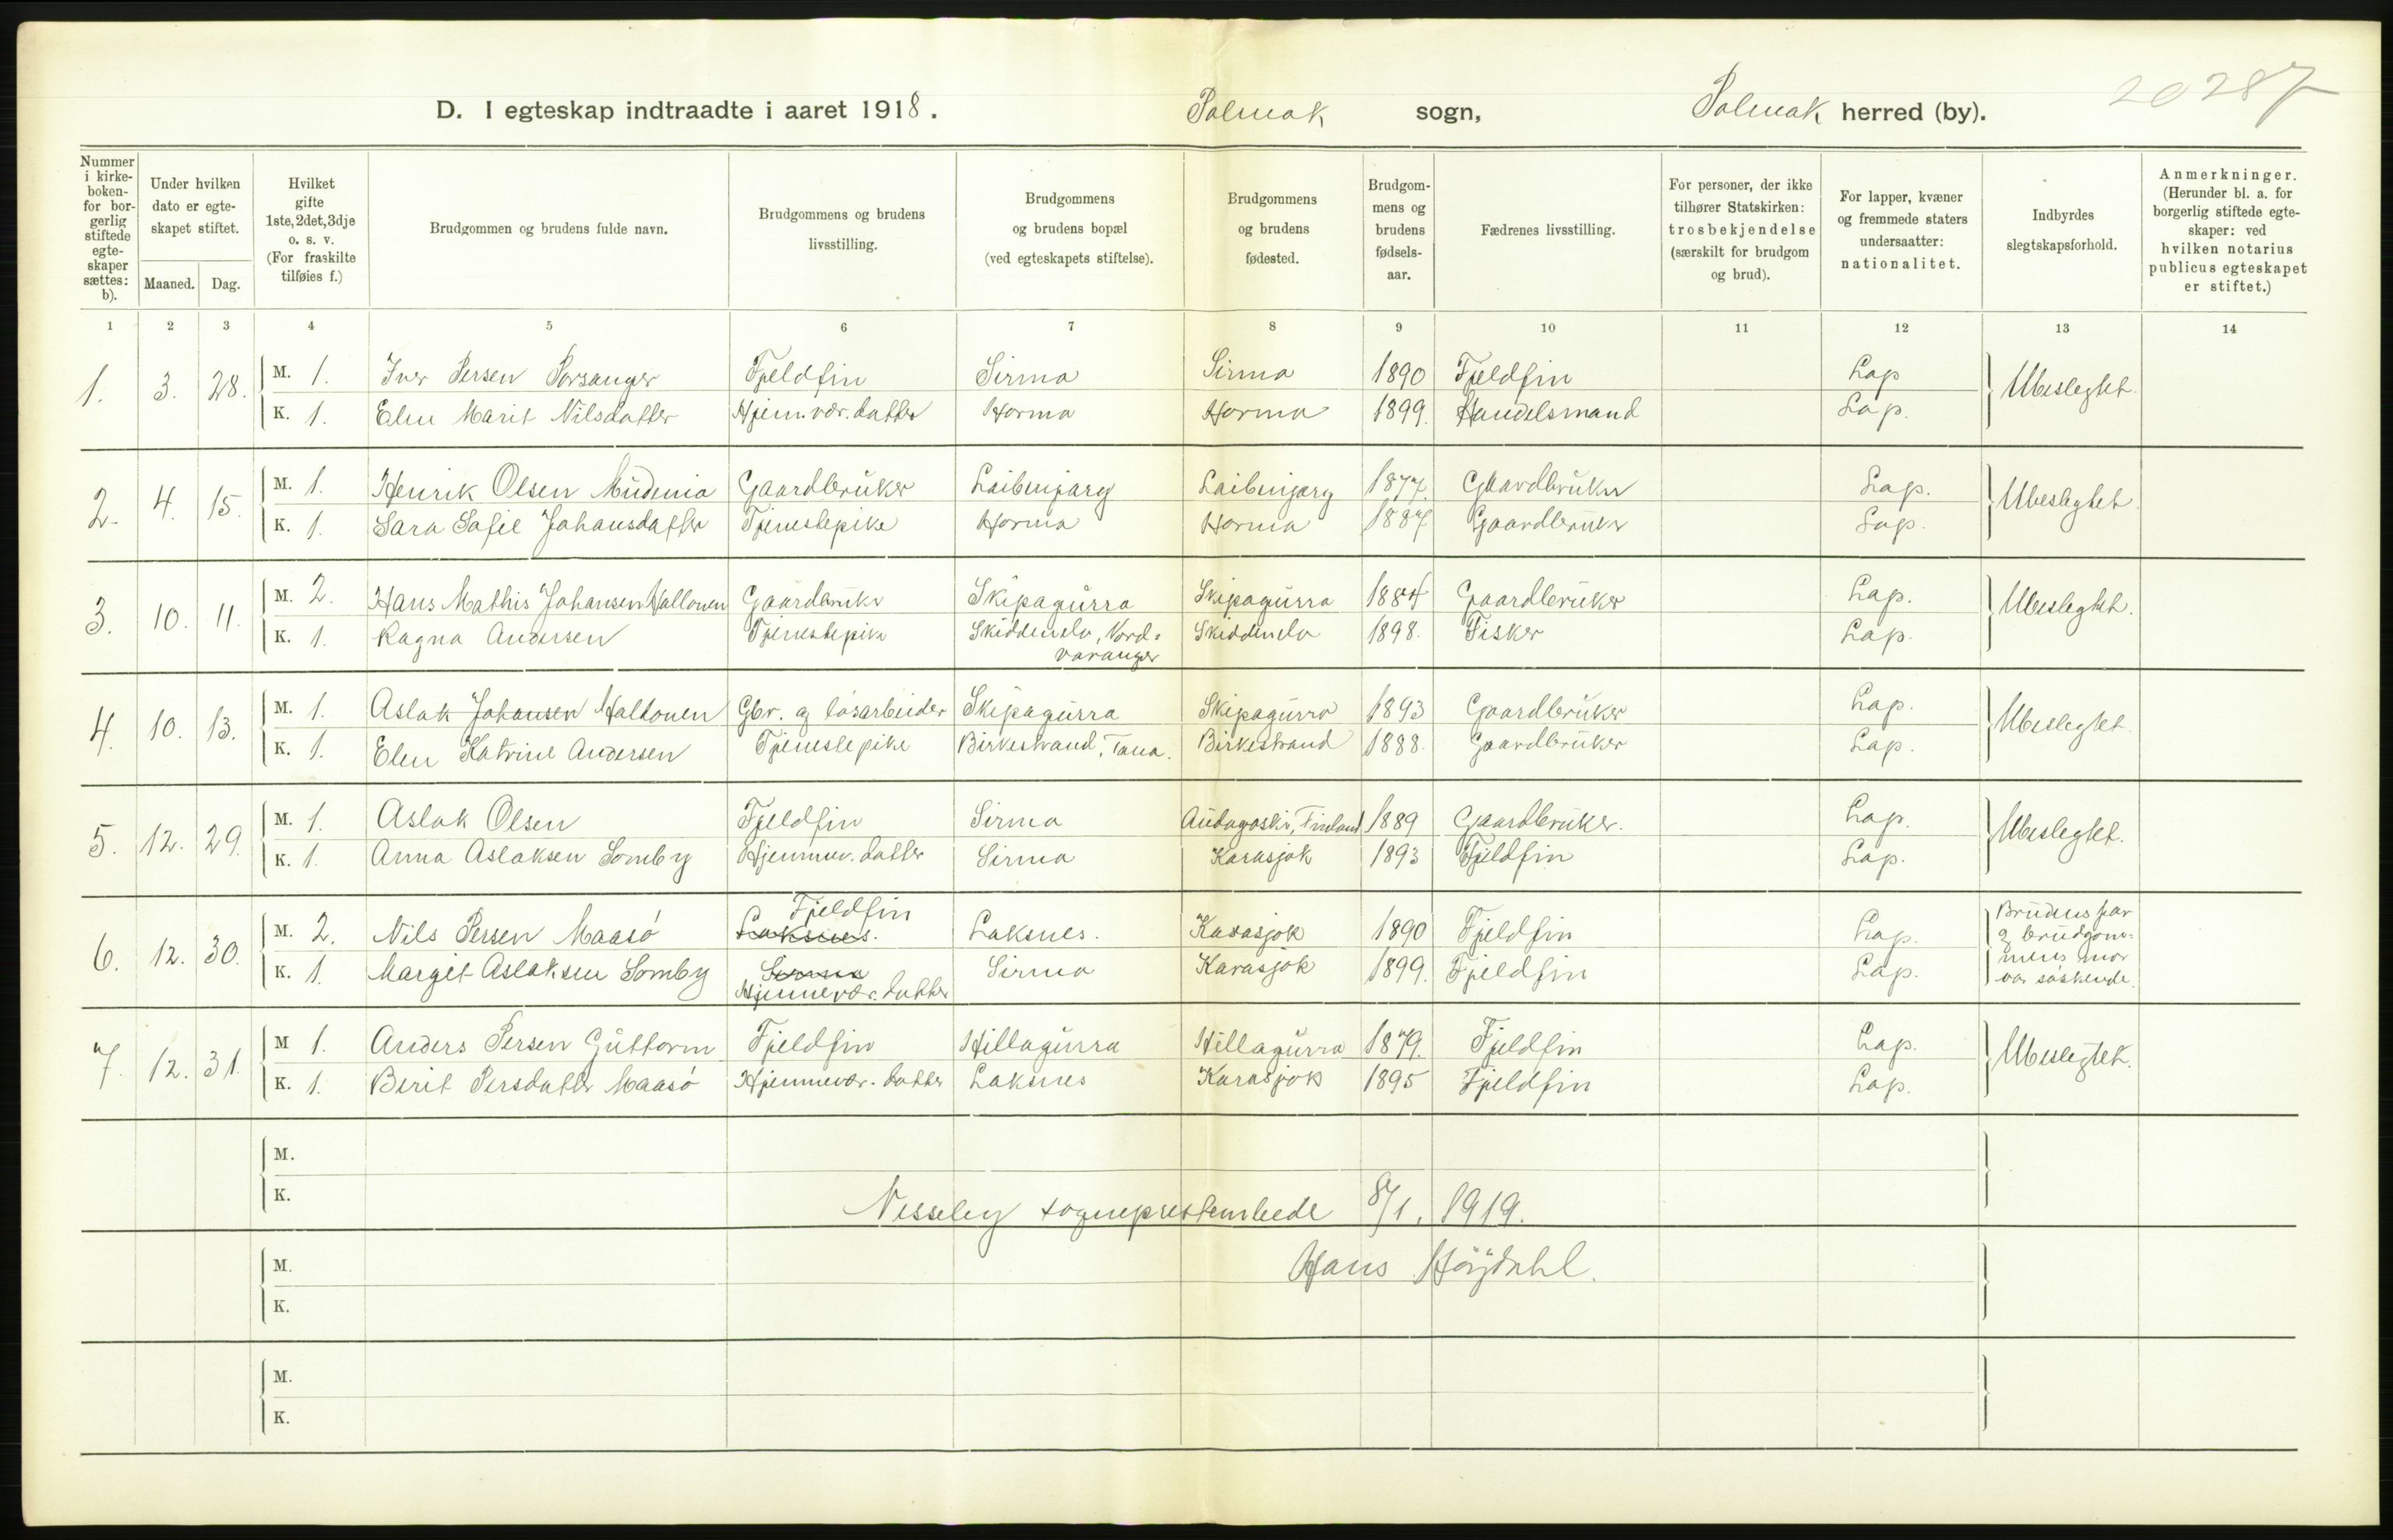 D. I egteskap indtraadte i aaret 1918. Polmak sogn, Polmak herred (by). 20287
Nummer i kirkeboken- for borgerlig stiftede egteskaper sættes: b). | Under hvilken dato er egteskapet stiftet. Maaned. Dag. | Hvilket gifte 1ste, 2det, 3dje o. s. v. (For fraskilte tilføies f.) | Brudgommen og brudens fulde navn. | Brudgommens og brudens livsstilling. | Brudgommens og brudens bopæl (ved egteskapets stiftelse). | Brudgommens og brudens fødested. | Brudgommens og brudens fødselsaar. | Fædrenes livsstilling. | For personer, der ikke tilhører Statskirken: trosbekjendelse (særskilt for brudgom og brud). | For lapper, kvæner og fremmede staters undersaatter: nationalitet. | Indbyrdes slegtskapsforhold. | Anmerkninger. (Herunder bl. a. for borgerlig stiftede egteskaper: ved hvilken notarius publicus egteskapet er stiftet.)
1 2 3 4 5 6 7 8 9 10 11 12 13 14
1. 3. 28. M. 1. Iver Persen Porsanger Fjeldfin Sirma Sirma 1890 Fjeldfin Lap Ubeslegtet
K. 1. Elen Marit Nilsdatter Hjem.vær.datter Horma Horma 1899. Handelsmand Lap.
2. 4. 15. M. 1. Henrik Olsen Mudenia Gaardbruker Laibinjarg Laibinjarg 1877. Gaardbruker Lap. Ubeslegtet
K. 1. Sara Sofie Johansdatter Tjenestepike Horma Horma 1887 Gaardbruker Lap.
3. 10. 11. M. 2. Hans Mathis Johansen Haltonen Gaardbruker Skipagurra Skipagurra 1884 Gaardbruker Lap. Ubeslegtet.
K. 1. Ragna Andersen Tjenestepike Skiddenelv, Nord- varanger Skiddenelv 1898. Fisker Lap.
4. 10. 13. M. 1. Aslak Johansen Haltonen Gbr. og løsarbeider Skipagurra Skipagurra 1893 Gaardbruker Lap. Ubeslegtet.
K. 1. Elen Katrine Andersen Tjenestepike Birkestrand, Tana. Birkestrand 1888. Gaardbruker Lap.
5. 12. 29. M. 1. Aslak Olsen Fjeldfin Sirma Audagoski, Finland 1889 Gaardbruker. Lap. Ubeslegtet.
K. 1. Anna Aslaksen Somby Hjemmev. datter Sirma Karasjok 1893 Fjeldfin Lap.
6. 12. 30. M. 2. Nils Persen Maasø Laksnes. Fjeldfin Laksnes. Karasjok 1890 Fjeldfin Lap. Brudens far og brudgommens mor var søskende.
K. 1. Margit Aslaksen Somby Sirma Hjemmevær. datter Sirma Karasjok 1899. Fjeldfin Lap.
7. 12. 31. M 1. Anders Persen Guttorm Fjeldfin Hillagurra Hillagurra 1879. Fjeldfin Lap. Ubeslegtet.
K. 1. Berit Persdatter Maasø Hjemmevær. datter Laksnes Karasjok 1895 Fjeldfin Lap.
M.
K.
Nesseby sogneprestembede 8/1. 1919.
M. Hans Høydahl.
K.
M.
K.